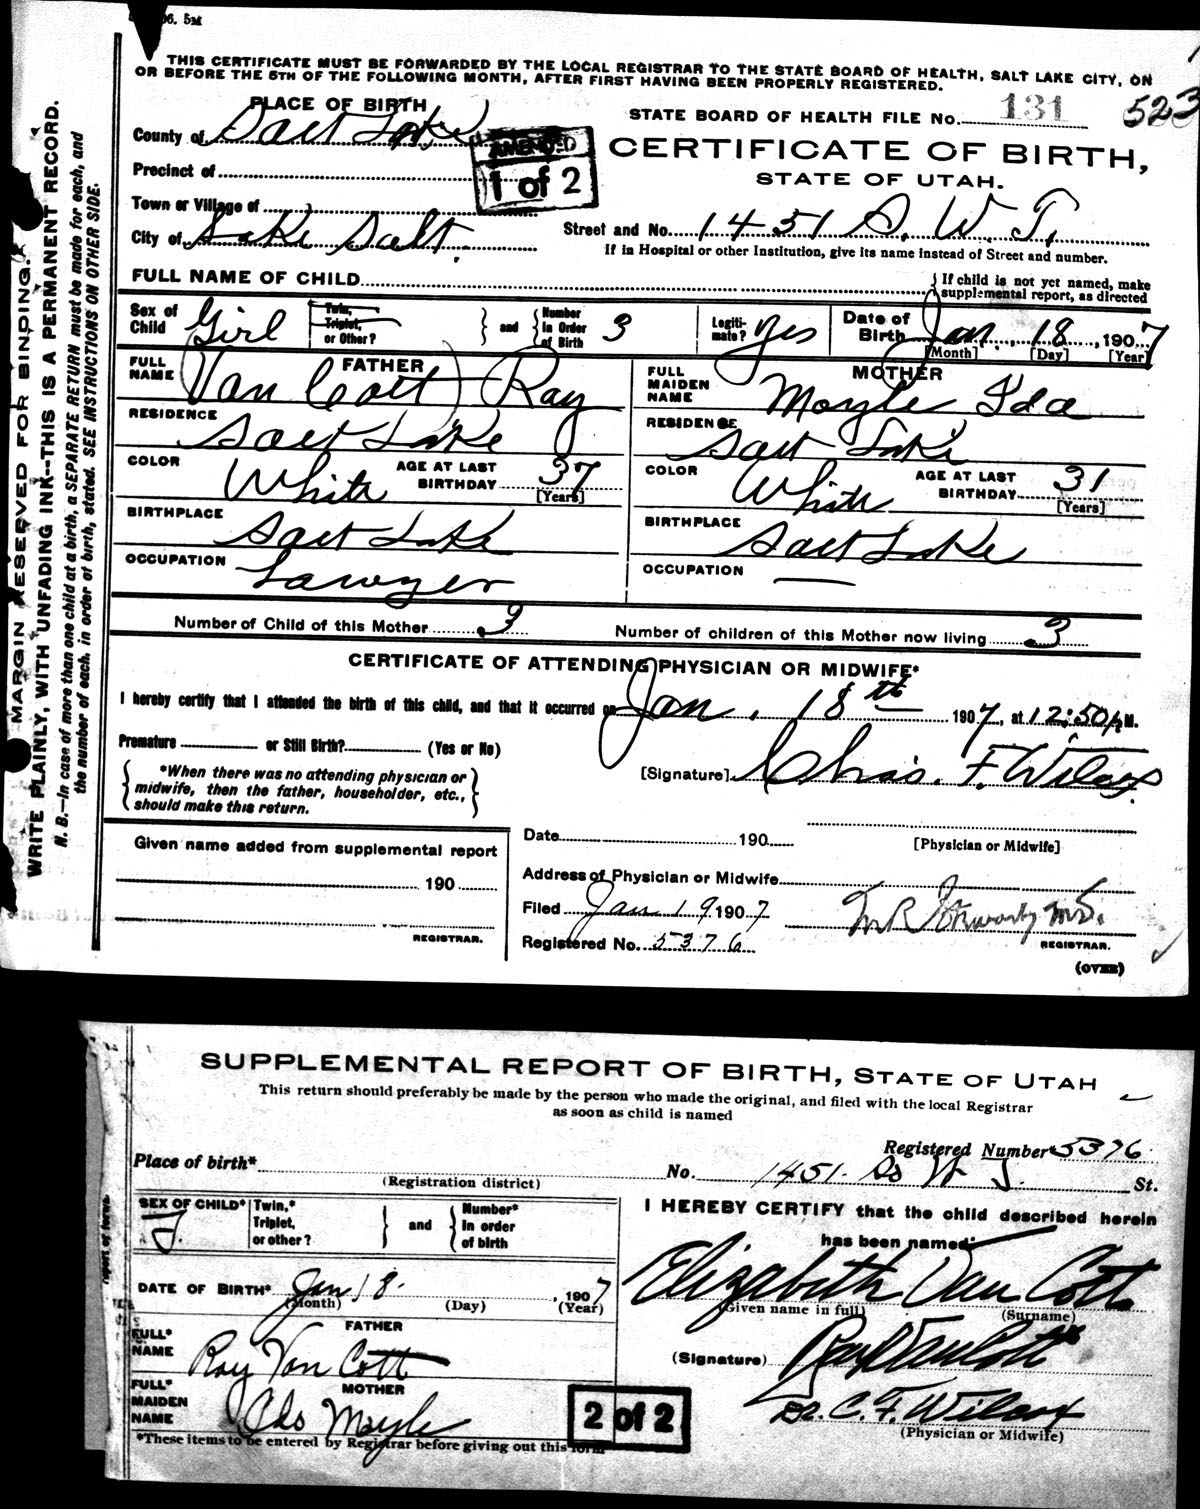 6. 5M
THIS CERTIFICATE MUST BE FORWARDED BY THE LOCAL REGISTRAR TO THE STATE BOARD OF HEALTH, SALT LAKE CITY, ON
OR BEFORE THE 5TH OF THE FOLLOWING MONTH, AFTER FIRST HAVING BEEN PROPERLY REGISTERED.
MARGIN RESERVED FOR BINDING.
WRITE PLAINLY, WITH UNFADING INK--THIS IS A PERMANENT RECORD.
N. B.—In case of more than one child at a birth, a SEPARATE RETURN must be made for each, and
the number of each, in order of birth, stated. SEE INSTRUCTIONS ON OTHER SIDE.
PLACE OF BIRTH
County of Salt Lake
Precinct of
Town or Village of
City of Lake Salt.
AMENDED
1 of 2
STATE BOARD OF HEALTH FILE No. 131 523
CERTIFICATE OF BIRTH,
STATE OF UTAH.
Street and No. 1451 S. W. T.
If in Hospital or other Institution, give its name instead of Street and number.
FULL NAME OF CHILD
If child is not yet named, make
supplemental report, as directed
Sex of Child Girl
Twin, Triplet, or Other?
and Number in Order of Birth 3
Legitimate? Yes
Date of Birth Jan. 18 1907
[Month] [Day] [Year]
FATHER
FULL NAME Van Cott Ray
RESIDENCE Salt Lake
COLOR White AGE AT LAST BIRTHDAY 37 [Years]
BIRTHPLACE Salt Lake
OCCUPATION Lawyer
MOTHER
FULL MAIDEN NAME Moyle Ida
RESIDENCE Salt Lake
COLOR White AGE AT LAST BIRTHDAY 31 [Years]
BIRTHPLACE Salt Lake
OCCUPATION —
Number of Child of this Mother 3 Number of children of this Mother now living 3
CERTIFICATE OF ATTENDING PHYSICIAN OR MIDWIFE*
I hereby certify that I attended the birth of this child, and that it occurred on Jan. 18th 1907, at 12:50 P.M.
Premature or Still Birth? (Yes or No)
*When there was no attending physician or
midwife, then the father, householder, etc.,
should make this return.
[Signature] Chas. F. Wilcox
Date 190
[Physician or Midwife]
Given name added from supplemental report
190
REGISTRAR.
Address of Physician or Midwife
Filed Jan 19 1907
Registered No. 5376
M.D.
REGISTRAR.
(OVER)
SUPPLEMENTAL REPORT OF BIRTH, STATE OF UTAH
This return should preferably be made by the person who made the original, and filed with the local Registrar
as soon as child is named
Registered Number* 5376
Place of birth* No. 1451 So W. T. St.
(Registration district)
SEX OF CHILD* F.
Twin,* Triplet, or other?
and Number* in order of birth
DATE OF BIRTH* Jan 18. 1907
(Month) (Day) (Year)
FATHER
FULL* NAME Ray Van Cott
MOTHER
FULL* MAIDEN NAME Ida Moyle
*These items to be entered by Registrar before giving out this form
I HEREBY CERTIFY that the child described herein
has been named:
Elizabeth Van Cott
(Given name in full) (Surname)
(Signature) Ray Van Cott
Dr. C. F. Wilcox
(Physician or Midwife)
2 of 2